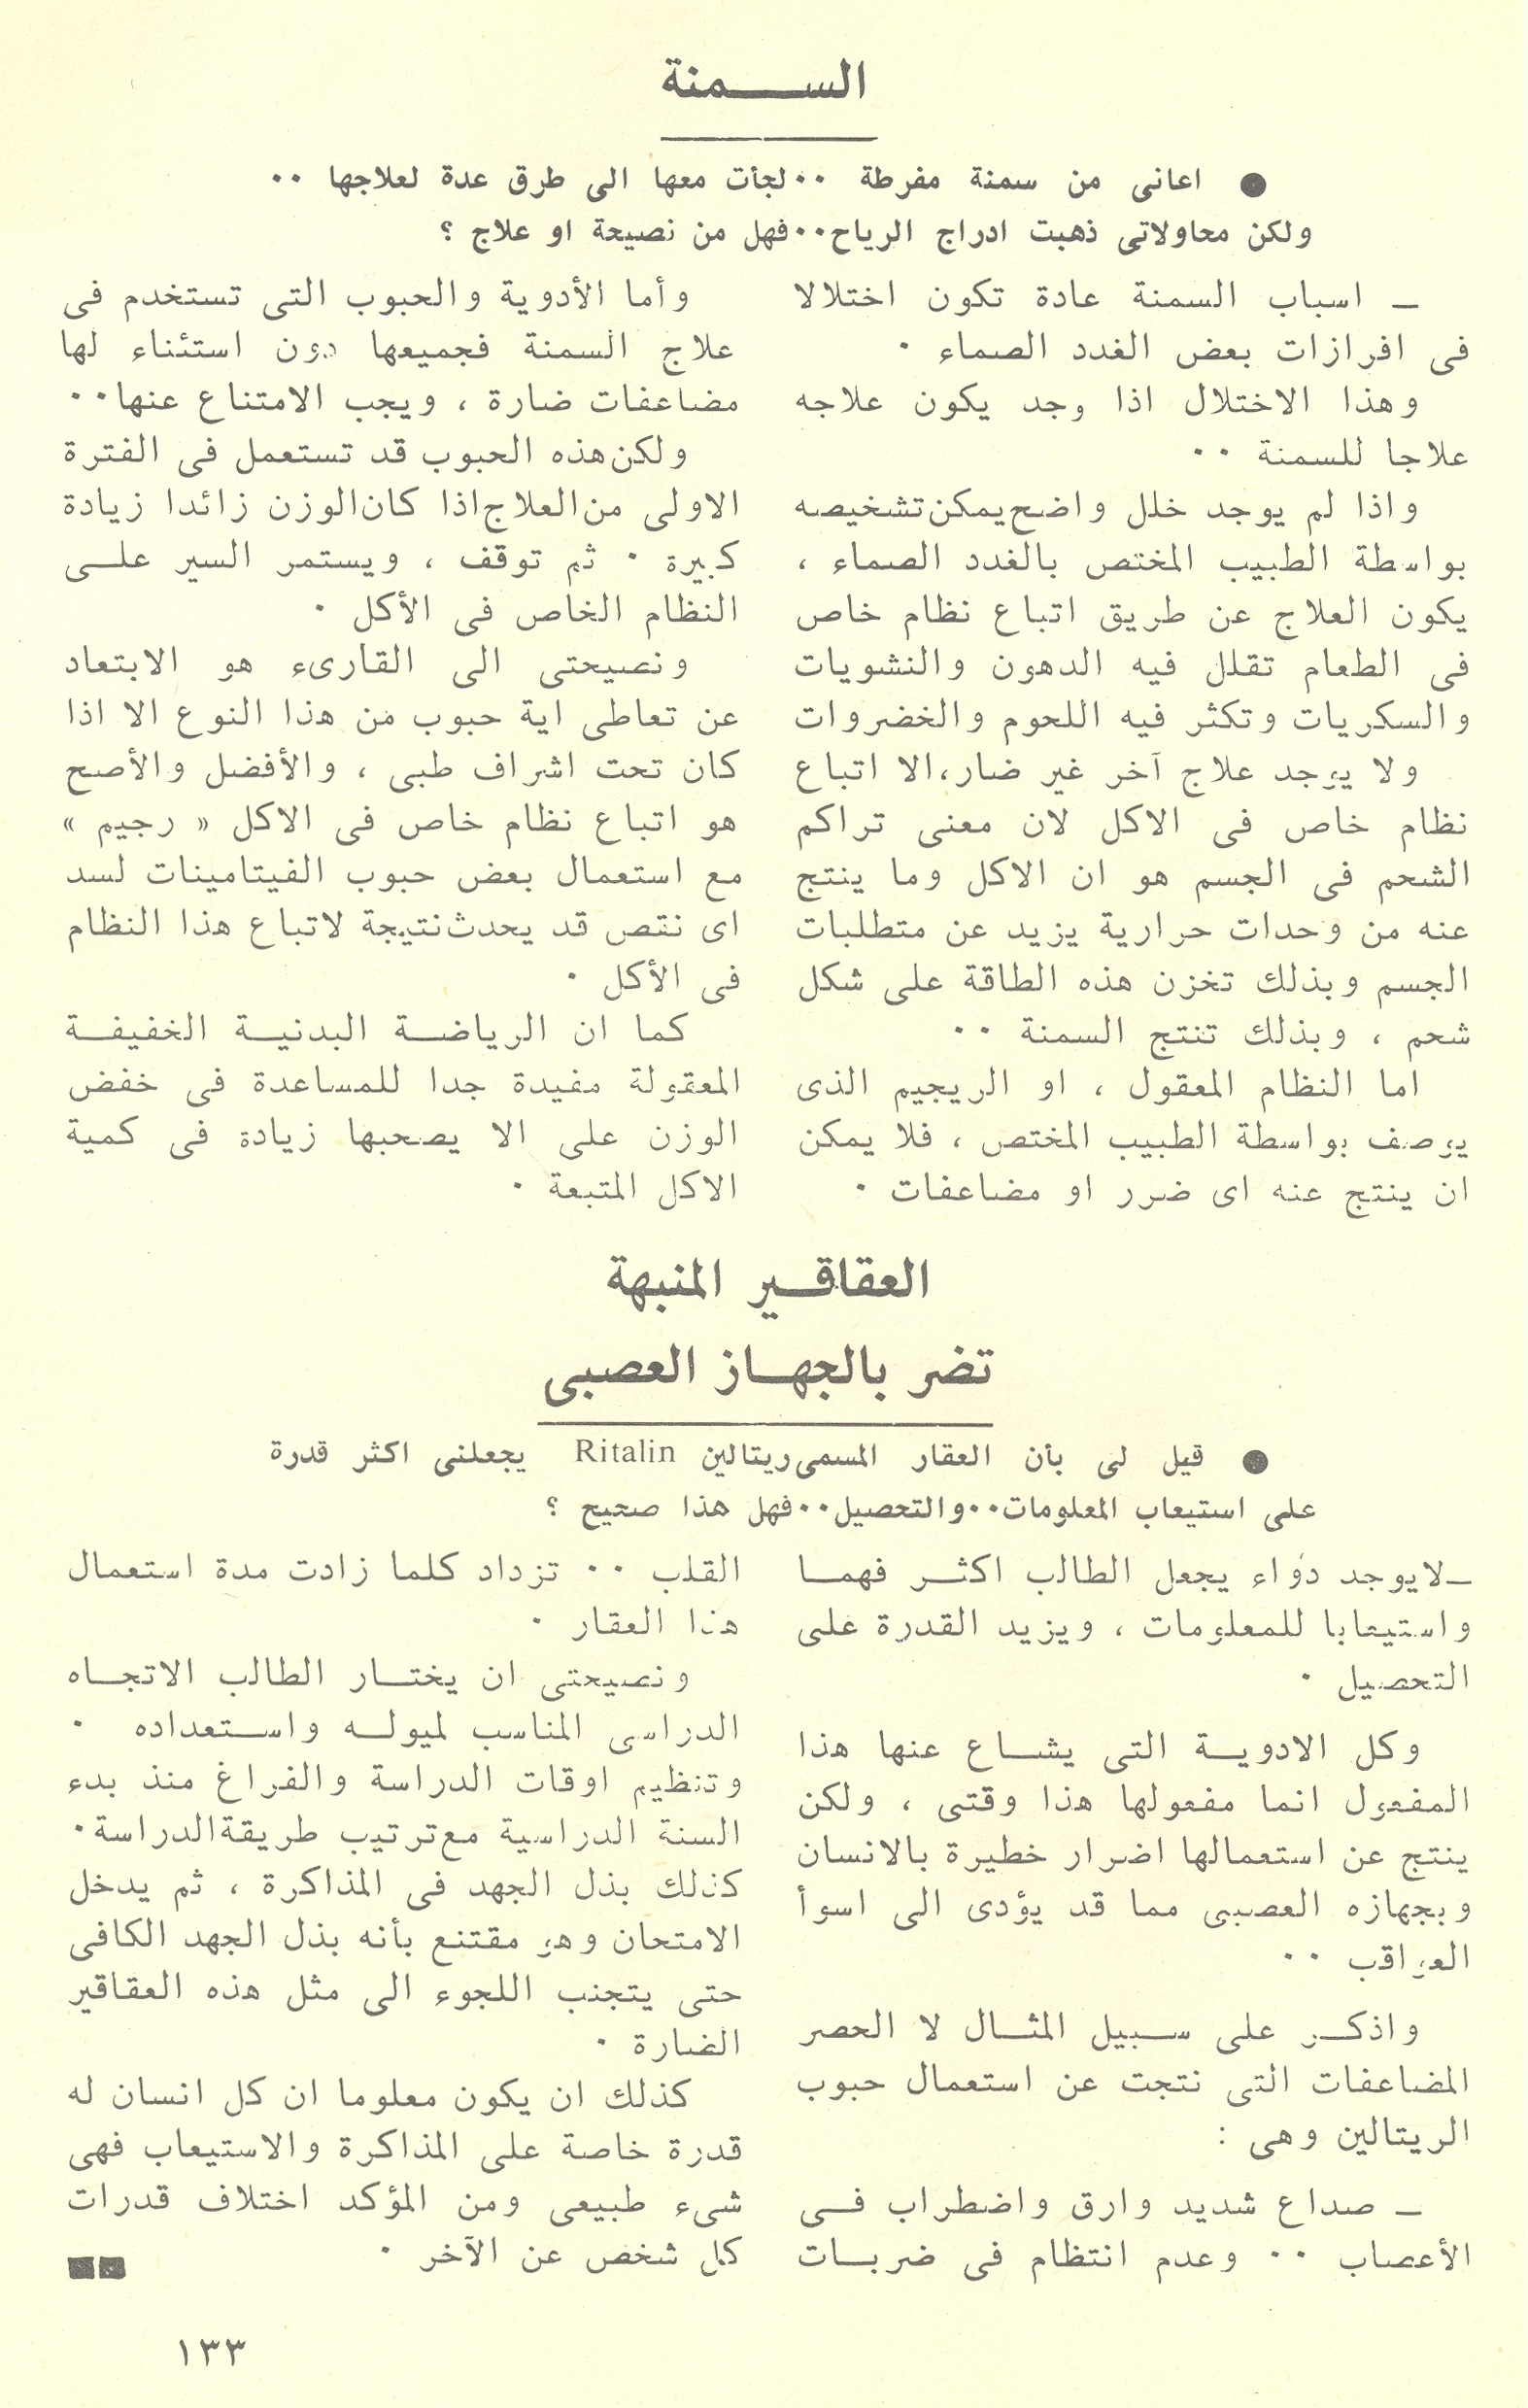 السمنة
● اعانى من سمنة مفرطة ٠٠ لجأت معها الى طرق عدة لعلاجها ٠٠
ولكن محاولاتى ذهبت ادراج الرياح ٠٠ فهل من نصيحة او علاج ؟
ـ اسباب السمنة عادة تكون اختلالا
فى افرازات بعض الغدد الصماء ٠
وهذا الاختلال اذا وجد يكون علاجه
علاجا للسمنة ٠٠
واذا لم يوجد خلل واضح يمكن تشخيصه
بواسطة الطبيب المختص بالغدد الصماء ،
يكون العلاج عن طريق اتباع نظام خاص
فى الطعام تقلل فيه الدهون والنشويات
والسكريات وتكثر فيه اللحوم والخضروات
ولا يوجد علاج آخر غير ضار ، الا اتباع
نظام خاص فى الاكل لان معنى تراكم
الشحم فى الجسم هو ان الاكل وما ينتج
عنه من وحدات حرارية يزيد عن متطلبات
الجسم وبذلك تخزن هذه الطاقة على شكل
شحم ، وبذلك تنتج السمنة ٠٠
اما النظام المعقول ، او الريجيم الذى
يوصف بواسطة الطبيب المختص ، فلا يمكن
ان ينتج عنه اى ضرر او مضاعفات ٠
وأما الأدوية والحبوب التى تستخدم فى
علاج السمنة فجميعها دون استئناء لها
مضاعفات ضارة ، ويجب الامتناع عنها ٠٠
ولكن هذه الحبوب قد تستعمل فى الفترة
الاولى من العلاج اذا كان الوزن زائدا زيادة
كبيرة ٠ ثم توقف ، ويستمر السير على
النظام الخاص فى الأكل ٠
ونصيحتى الى القارىء هو الابتعاد
عن تعاطى اية حبوب من هذا النوع الا اذا
كان تحت اشراف طبى ، والأفضل والأصح
هو اتباع نظام خاص فى الاكل « رجيم »
مع استعمال بعض حبوب الفيتامينات لسد
اى نقص قد يحدث نتيجة لاتباع هذا النظام
فى الأكل ٠
كما ان الرياضة البدنية الخفيفة
المعقولة مفيدة جدا للمساعدة فى خفض
الوزن على الا يصحبها زيادة فى كمية
الاكل المتبعة ٠
العقاقير المنبهة
تضر بالجهاز العصبى
● قيل لى بأن العقار المسمى ريتالين Ritalin يجعلنى اكثر قدرة
على استيعاب المعلومات ٠٠ والتحصيل ٠٠ فهل هذا صحيح ؟
ـ لايوجد دواء يجعل الطالب اكثر فهما
واستيعابا للمعلومات ، ويزيد القدرة على
التحصيل ٠
وكل الادوية التى يشاع عنها هذا
المفعول انما مفعولها هذا وقتى ، ولكن
ينتج عن استعمالها اضرار خطيرة بالانسان
وبجهازه العصبى مما قد يؤدى الى اسوأ
العواقب ٠٠
واذكر على سبيل المثال لا الحصر
المضاعفات التى نتجت عن استعمال حبوب
الريتالين وهى :
ـ صداع شديد وارق واضطراب فى
الأعصاب ٠٠ وعدم انتظام فى ضربات
القلب ٠٠ تزداد كلما زادت مدة استعمال
هذا العقار ٠
ونصيحتى ان يختار الطالب الاتجاه
الدراسى المناسب لميوله واستعداده ٠
وتنظيم اوقات الدراسة والفراغ منذ بدء
السنة الدراسية مع ترتيب طريقة الدراسة ٠
كذلك بذل الجهد فى المذاكرة ، ثم يدخل
الامتحان وهو مقتنع بأنه بذل الجهد الكافى
حتى يتجنب اللجوء الى مثل هذه العقاقير
الضارة ٠
كذلك ان يكون معلوما ان كل انسان له
قدرة خاصة على المذاكرة والاستيعاب فهى
شىء طبيعى ومن المؤكد اختلاف قدرات
كل شخص عن الآخر ٠
١٣٣